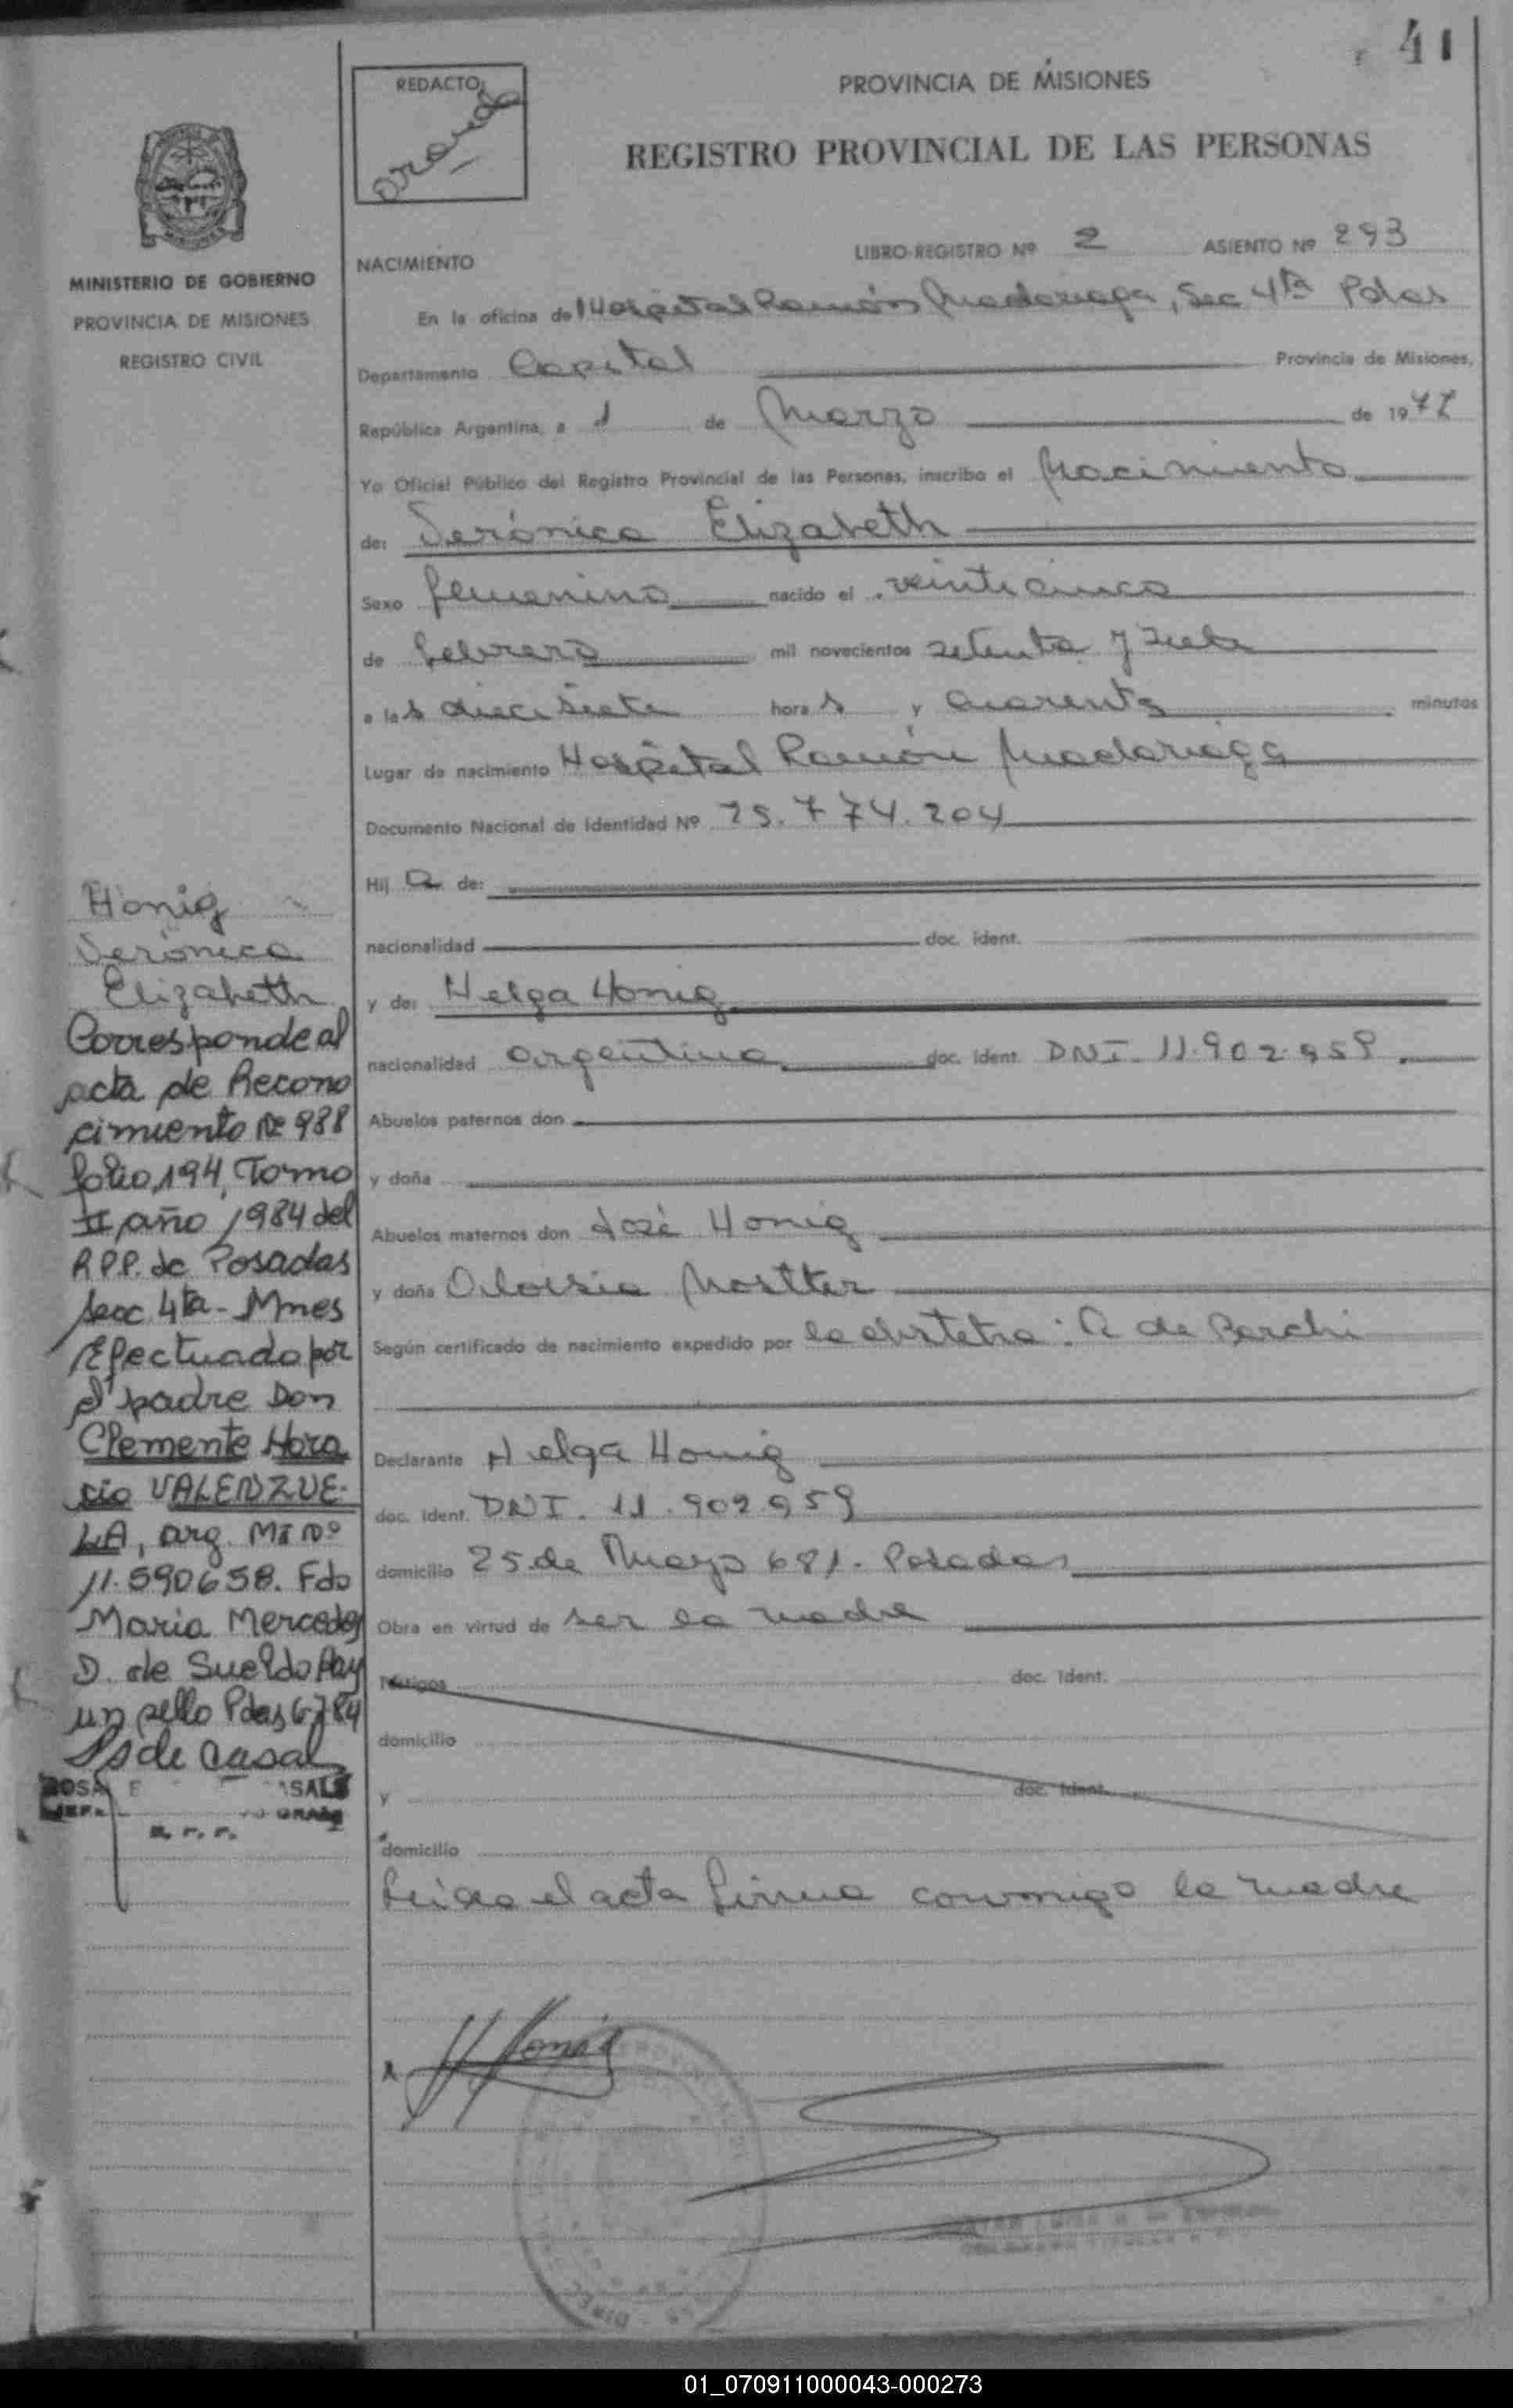 41
REDACTO
PROVINCIA DE MISIONES
REGISTRO PROVINCIAL DE LAS PERSONAS
MINISTERIO DE GOBIERNO
PROVINCIA DE MISIONES
REGISTRO CIVIL
NACIMIENTO
LIBRO-REGISTRO Nº 2 ASIENTO Nº 293
En la oficina de Hospital Ramón Madariaga, Sec 4ta Pdas
Departamento Capital Provincia de Misiones,
República Argentina, a 1 de Marzo de 1977
Yo Oficial Público del Registro Provincial de las Personas, inscribo el Nacimiento
de: Verónica Elizabeth
Sexo femenino nacido el veinticinco
de febrero mil novecientos setenta y siete
a las diecisiete horas y cuarenta minutos
Lugar de nacimiento Hospital Ramón Madariaga
Documento Nacional de Identidad Nº 25.774.204
Hija de:
nacionalidad doc. ident.
y de: Helga Honig
nacionalidad argentina doc. ident. DNI. 11.902.959.
Abuelos paternos don
y doña
Abuelos maternos don José Honig
y doña
Según certificado de nacimiento expedido por la obstetra: A de
Declarante Helga Honig
doc. ident. DNI. 11.902.959
domicilio 25 de Mayo 681. Posadas
Obra en virtud de ser la madre
Testigos doc. ident.
domicilio
y doc. ident.
domicilio
Leida el acta firma conmigo la madre
H Honig
Honig
Verónica
Elizabeth
Corresponde al
acta de Recono
cimiento Nº 988
folio 194, Tomo
II año 1984 del
R.P.P. de Posadas
secc. 4ta - Mnes
Efectuado por
el padre Don
Clemente Hora
cio VALENZUE-
LA, arg. MI Nº
11.590658. Fdo
Maria Mercedes
D. de Sueldo Hay
un sello Pdas 6-7-84
R.P.P.
01_070911000043-000273